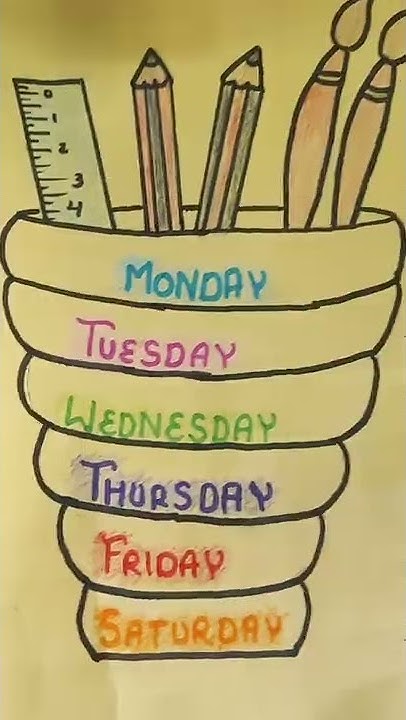 0
1
2
3
4
MONDAY
TUESDAY
WEDNESDAY
THURSDAY
FRIDAY
SATURDAY